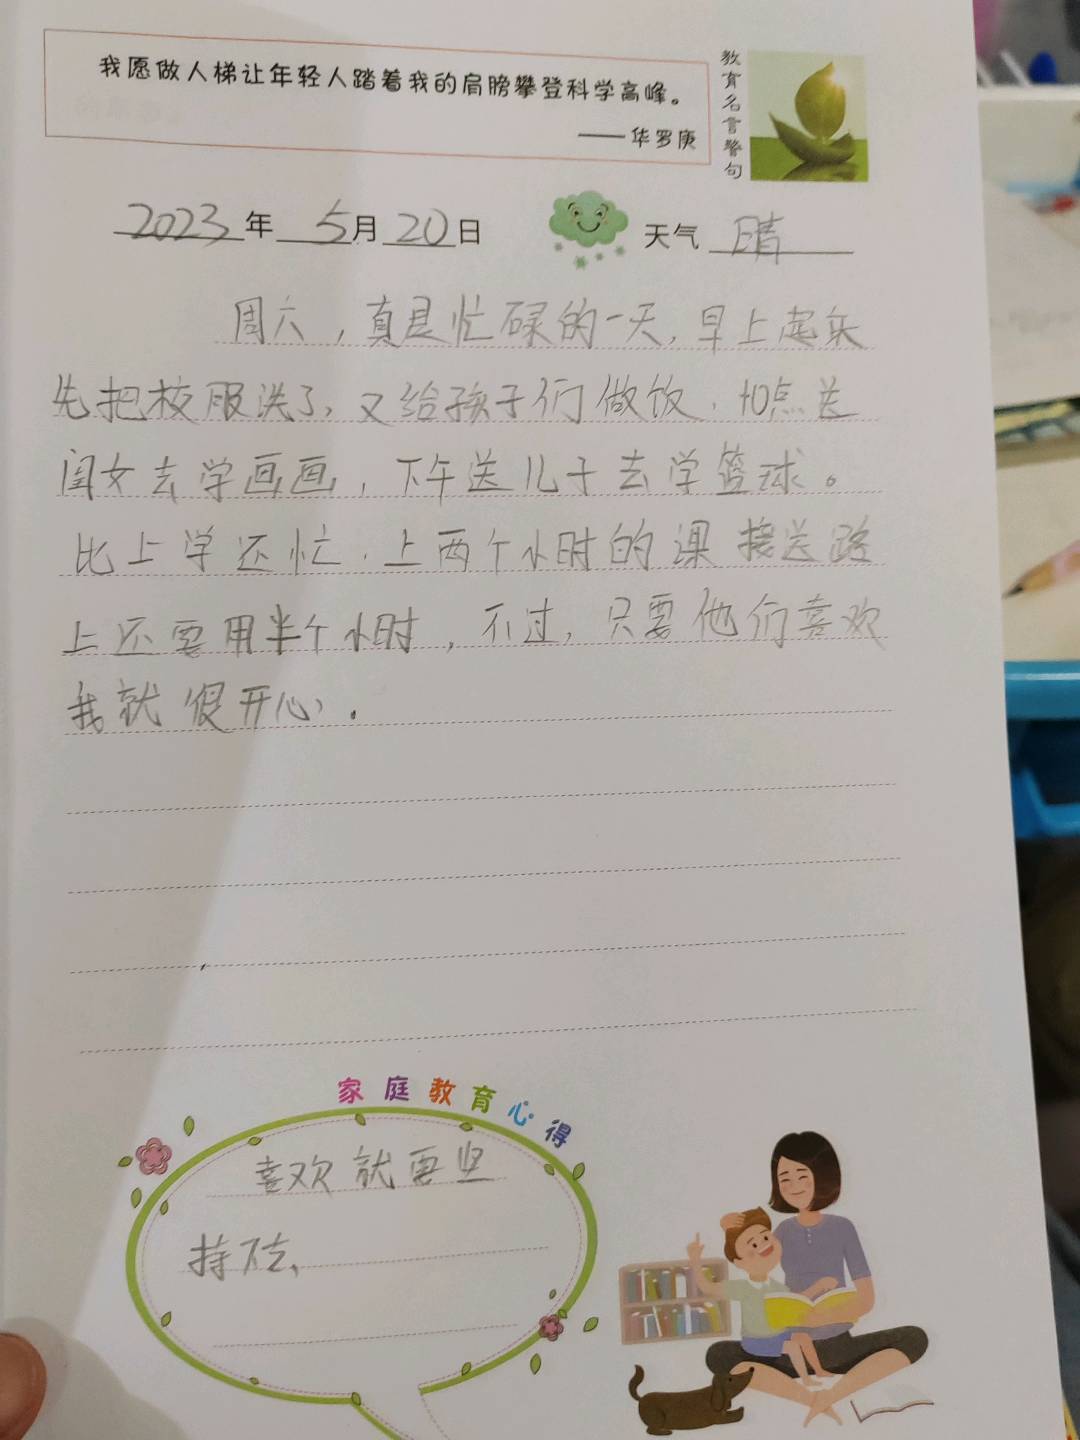 我愿做人梯让年轻人踏着我的肩膀攀登科学高峰。
——华罗庚
教育名言警句
2023年 5月20日 天气 晴
周六，真是忙碌的一天，早上起来
先把校服洗了，又给孩子们做饭，10点送
闺女去学画画，下午送儿子去学篮球。
比上学还忙，上两个小时的课 接送路
上还要用半个小时，不过，只要他们喜欢
我就很开心。
家庭教育心得
喜欢就要坚
持下去、